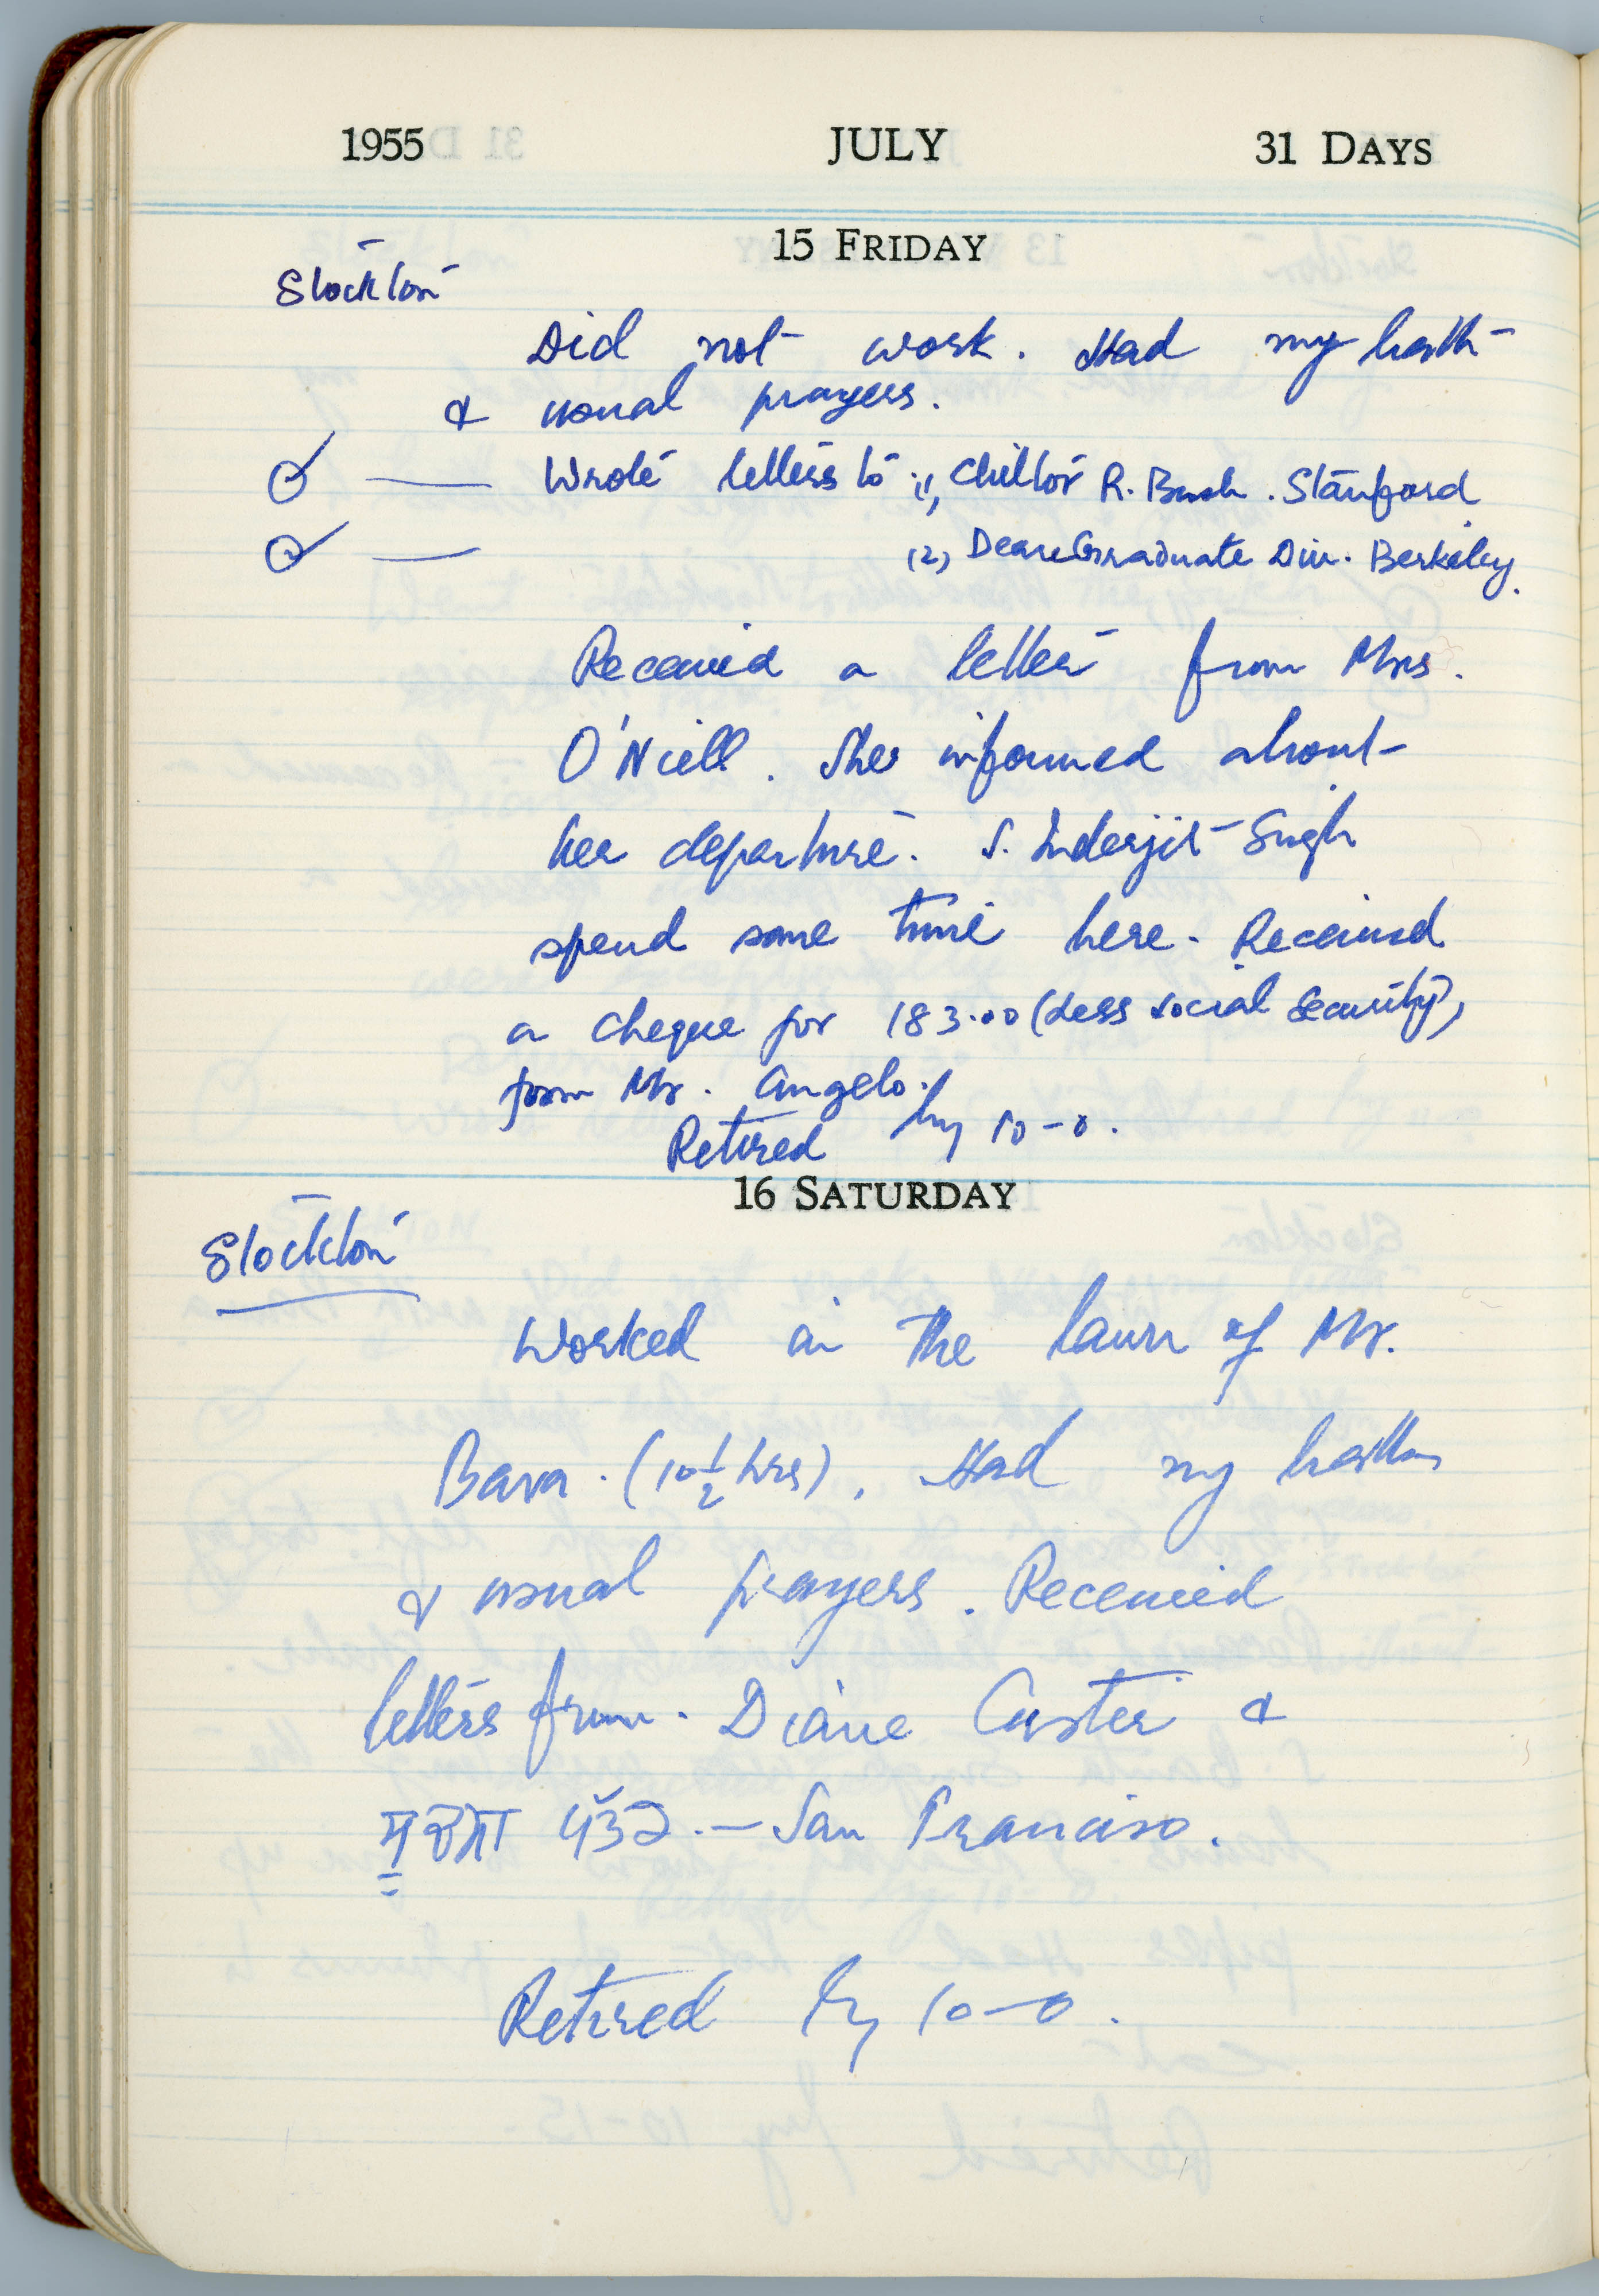 1955 JULY 31 DAYS
15 FRIDAY
Stockton
Did not work. Had my bath
& usual prayers.
Wrote letters to (1) Chilton R. Bush. Stanford
(2) Dean Graduate Div. Berkeley.
Received a letter from Mrs.
O'Niell. She informed about
her departure. S. Inderjit Singh
spend some time here. Received
a cheque for 183.00 (Less social security)
from Mr. Angelo.
Retired by 10-0.
16 SATURDAY
Stockton
Worked in the lawn of Mr.
Bava. (10½ hrs). Had my bath
& usual prayers. Received
letters from. Diane Custer &
— San Francisco.
Retired by 10-0.